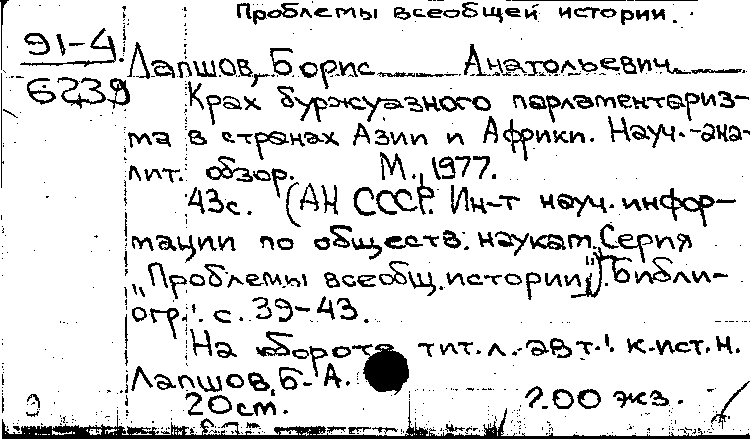 Проблемы всеобщей истории.
91-4
6239
Лапшов, Борис Анатольевич.
Крах буржуазного парламентариз-
ма в странах Азии и Африки. Науч.-ана-
лит. обзор. М., 1977.
43с. (АН СССР. Ин-т науч. инфор-
мации по обществ. наукам. Серия
"Проблемы всеобщ. истории"). Библи-
огр.: с. 39-43.
На обороте тит. л. авт.: к. ист. н.
Лапшов, Б. А.
20 см. ?.00 экз.